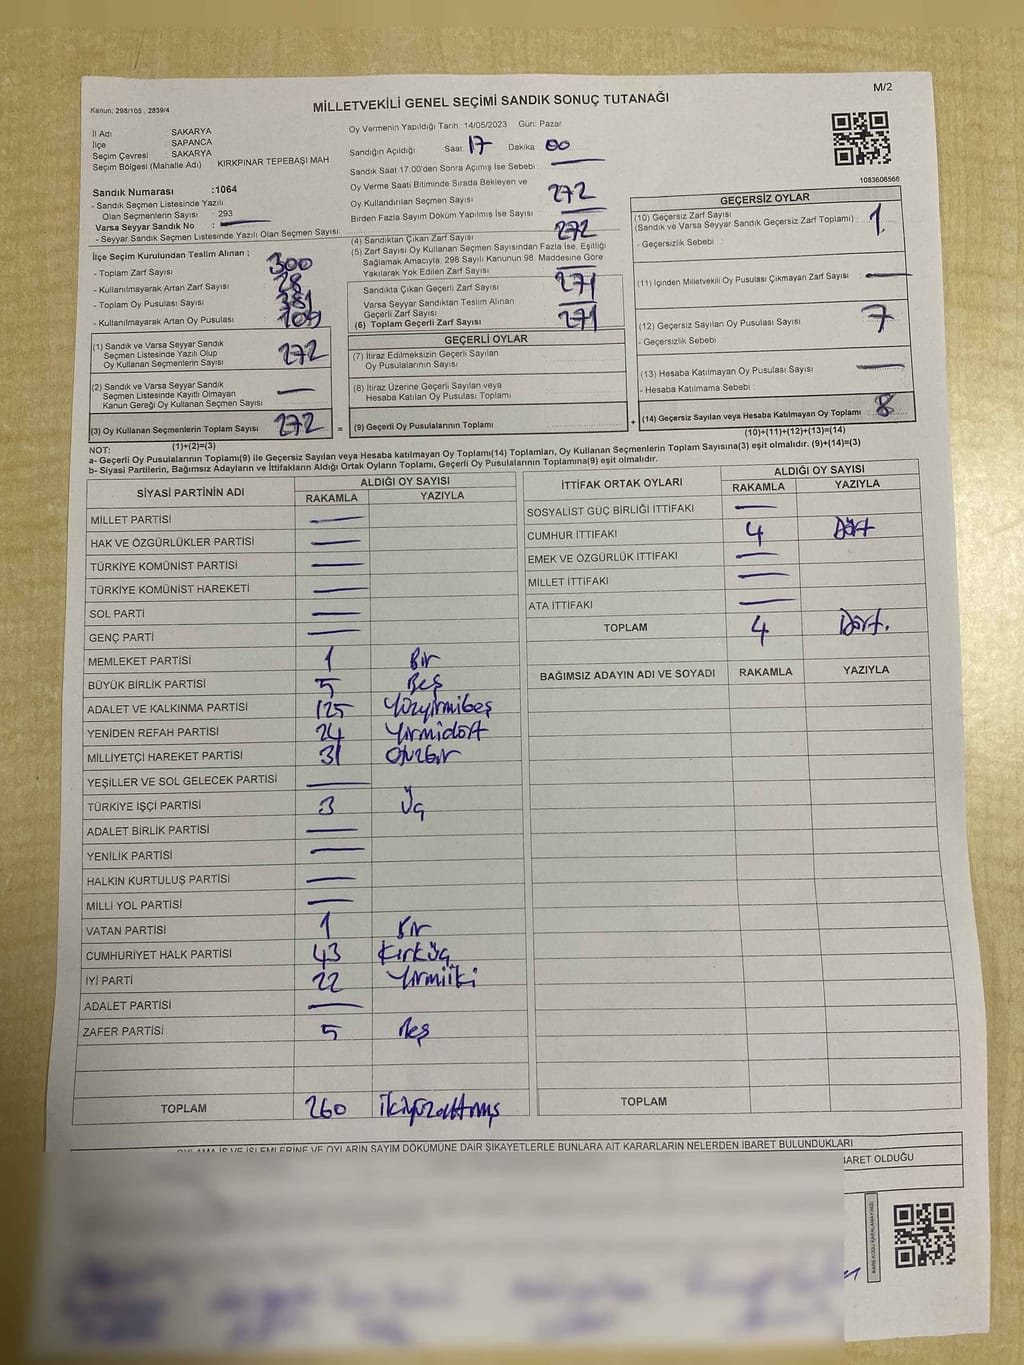 M/2
Kanun: 298/105 . 2839/4
MİLLETVEKİLİ GENEL SEÇİMİ SANDIK SONUÇ TUTANAĞI
İl Adı SAKARYA
İlçe SAPANCA
Seçim Çevresi : SAKARYA
Seçim Bölgesi (Mahalle Adı) : KIRKPINAR TEPEBAŞI MAH
Sandık Numarası :1064
- Sandık Seçmen Listesinde Yazılı
Olan Seçmenlerin Sayısı : 293
Varsa Seyyar Sandık No : —
- Seyyar Sandık Seçmen Listesinde Yazılı Olan Seçmen Sayısı
İlçe Seçim Kurulundan Teslim Alınan ;
- Toplam Zarf Sayısı 300
- Kullanılmayarak Artan Zarf Sayısı 28
- Toplam Oy Pusulası Sayısı 381
- Kullanılmayarak Artan Oy Pusulası 109
(1) Sandık ve Varsa Seyyar Sandık
Seçmen Listesinde Yazılı Olup
Oy Kullanan Seçmenlerin Sayısı 272
(2) Sandık ve Varsa Seyyar Sandık
Seçmen Listesinde Kayıtlı Olmayan
Kanun Gereği Oy Kullanan Seçmen Sayısı —
(3) Oy Kullanan Seçmenlerin Toplam Sayısı 272
(1)+(2)=(3)
Oy Vermenin Yapıldığı Tarih 14/05/2023 Gün: Pazar
Sandığın Açıldığı Saat 17 Dakika 00
Sandık Saat 17:00'den Sonra Açımış İse Sebebi : —
Oy Verme Saati Bitiminde Sırada Bekleyen ve
Oy Kullandırılan Seçmen Sayısı 272
Birden Fazla Sayım Döküm Yapılmış İse Sayısı —
(4) Sandıktan Çıkan Zarf Sayısı 272
(5) Zarf Sayısı Oy Kullanan Seçmen Sayısından Fazla İse, Eşitliği
Sağlamak Amacıyla, 298 Sayılı Kanunun 98. Maddesine Göre
Yakılarak Yok Edilen Zarf Sayısı —
Sandıkta Çıkan Geçerli Zarf Sayısı 271
Varsa Seyyar Sandıktan Teslim Alınan
Geçerli Zarf Sayısı —
(6) Toplam Geçerli Zarf Sayısı 271
GEÇERLİ OYLAR
(7) İtiraz Edilmeksizin Geçerli Sayılan
Oy Pusulalarının Sayısı
(8) İtiraz Üzerine Geçerli Sayılan veya
Hesaba Katılan Oy Pusulası Toplamı
= (9) Geçerli Oy Pusulalarının Toplamı +
1083606566
GEÇERSİZ OYLAR
(10) Geçersiz Zarf Sayısı
(Sandık ve Varsa Seyyar Sandık Geçersiz Zarf Toplamı) : 1
- Geçersizlik Sebebi :
(11) İçinden Milletvekili Oy Pusulası Çıkmayan Zarf Sayısı —
(12) Geçersiz Sayılan Oy Pusulası Sayısı 7
- Geçersizlik Sebebi
(13) Hesaba Katılmayan Oy Pusulası Sayısı —
- Hesaba Katılmama Sebebi :
(14) Geçersiz Sayılan veya Hesaba Katılmayan Oy Toplamı 8
(10)+(11)+(12)+(13)=(14)
NOT:
a- Geçerli Oy Pusulalarının Toplamı(9) ile Geçersiz Sayılan veya Hesaba katılmayan Oy Toplamı(14) Toplamları, Oy Kullanan Seçmenlerin Toplam Sayısına(3) eşit olmalıdır. (9)+(14)=(3)
b- Siyasi Partilerin, Bağımsız Adayların ve İttifakların Aldığı Ortak Oyların Toplamı, Geçerli Oy Pusulalarının Toplamına(9) eşit olmalıdır.
SİYASİ PARTİNİN ADI ALDIĞI OY SAYISI
RAKAMLA YAZIYLA
MİLLET PARTİSİ —
HAK VE ÖZGÜRLÜKLER PARTİSİ —
TÜRKİYE KOMÜNİST PARTİSİ —
TÜRKİYE KOMÜNİST HAREKETİ —
SOL PARTİ —
GENÇ PARTİ —
MEMLEKET PARTİSİ 1 Bir
BÜYÜK BİRLİK PARTİSİ 5 Beş
ADALET VE KALKINMA PARTİSİ 125 Yüzyirmibeş
YENİDEN REFAH PARTİSİ 24 Yirmidört
MİLLİYETÇİ HAREKET PARTİSİ 31 Otuzbir
YEŞİLLER VE SOL GELECEK PARTİSİ —
TÜRKİYE İŞÇİ PARTİSİ 3 Üç
ADALET BİRLİK PARTİSİ —
YENİLİK PARTİSİ —
HALKIN KURTULUŞ PARTİSİ —
MİLLİ YOL PARTİSİ —
VATAN PARTİSİ 1 Bir
CUMHURİYET HALK PARTİSİ 43 Kırküç
İYİ PARTİ 22 Yirmiiki
ADALET PARTİSİ —
ZAFER PARTİSİ 5 Beş
TOPLAM 260 İkiyüzaltmış
İTTİFAK ORTAK OYLARI ALDIĞI OY SAYISI
RAKAMLA YAZIYLA
SOSYALİST GÜÇ BİRLİĞİ İTTİFAKI —
CUMHUR İTTİFAKI 4 Dört
EMEK VE ÖZGÜRLÜK İTTİFAKI —
MİLLET İTTİFAKI —
ATA İTTİFAKI —
TOPLAM 4 Dört.
BAĞIMSIZ ADAYIN ADI VE SOYADI RAKAMLA YAZIYLA
TOPLAM
OYLAMA İŞ VE İŞLEMLERİNE VE OYLARIN SAYIM DÖKÜMÜNE DAİR ŞİKAYETLERLE BUNLARA AİT KARARLARIN NELERDEN İBARET BULUNDUKLARI
İBARET OLDUĞU
KARE KODU KARALAMAYINIZ!